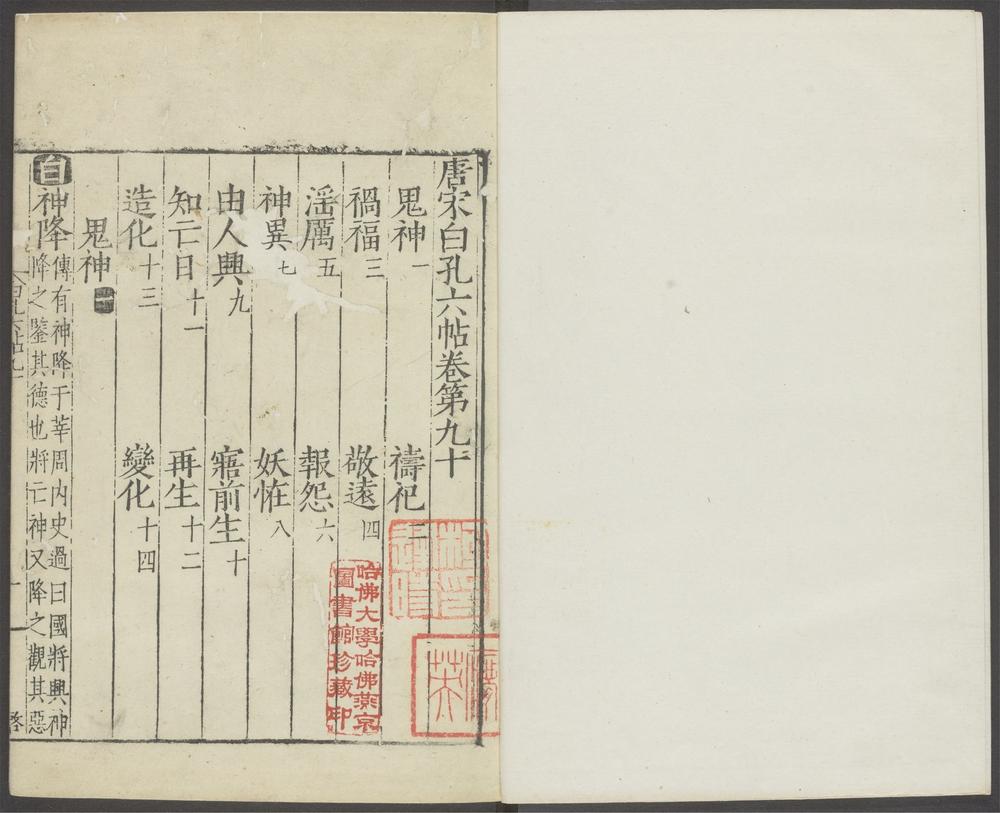 唐宋白孔六帖卷第九十
鬼神一 禱祀二
禍福三 敬遠四
淫厲五 報怨六
神異七 妖怪八
由人興九 寤前生十
知亡日十一 再生十二
造化十三 變化十四
鬼神一
白 神降傳有神降于莘周内史過曰國將興神
降之鑒其德也將亡神又降之觀其惡
哈佛大學哈佛燕京
圖書館珍藏印